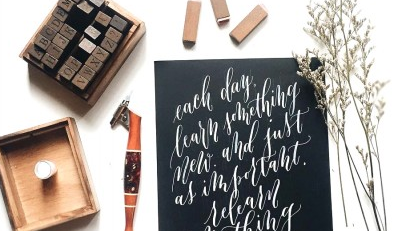 each day,
learn something
new, and just
as important,
relearn